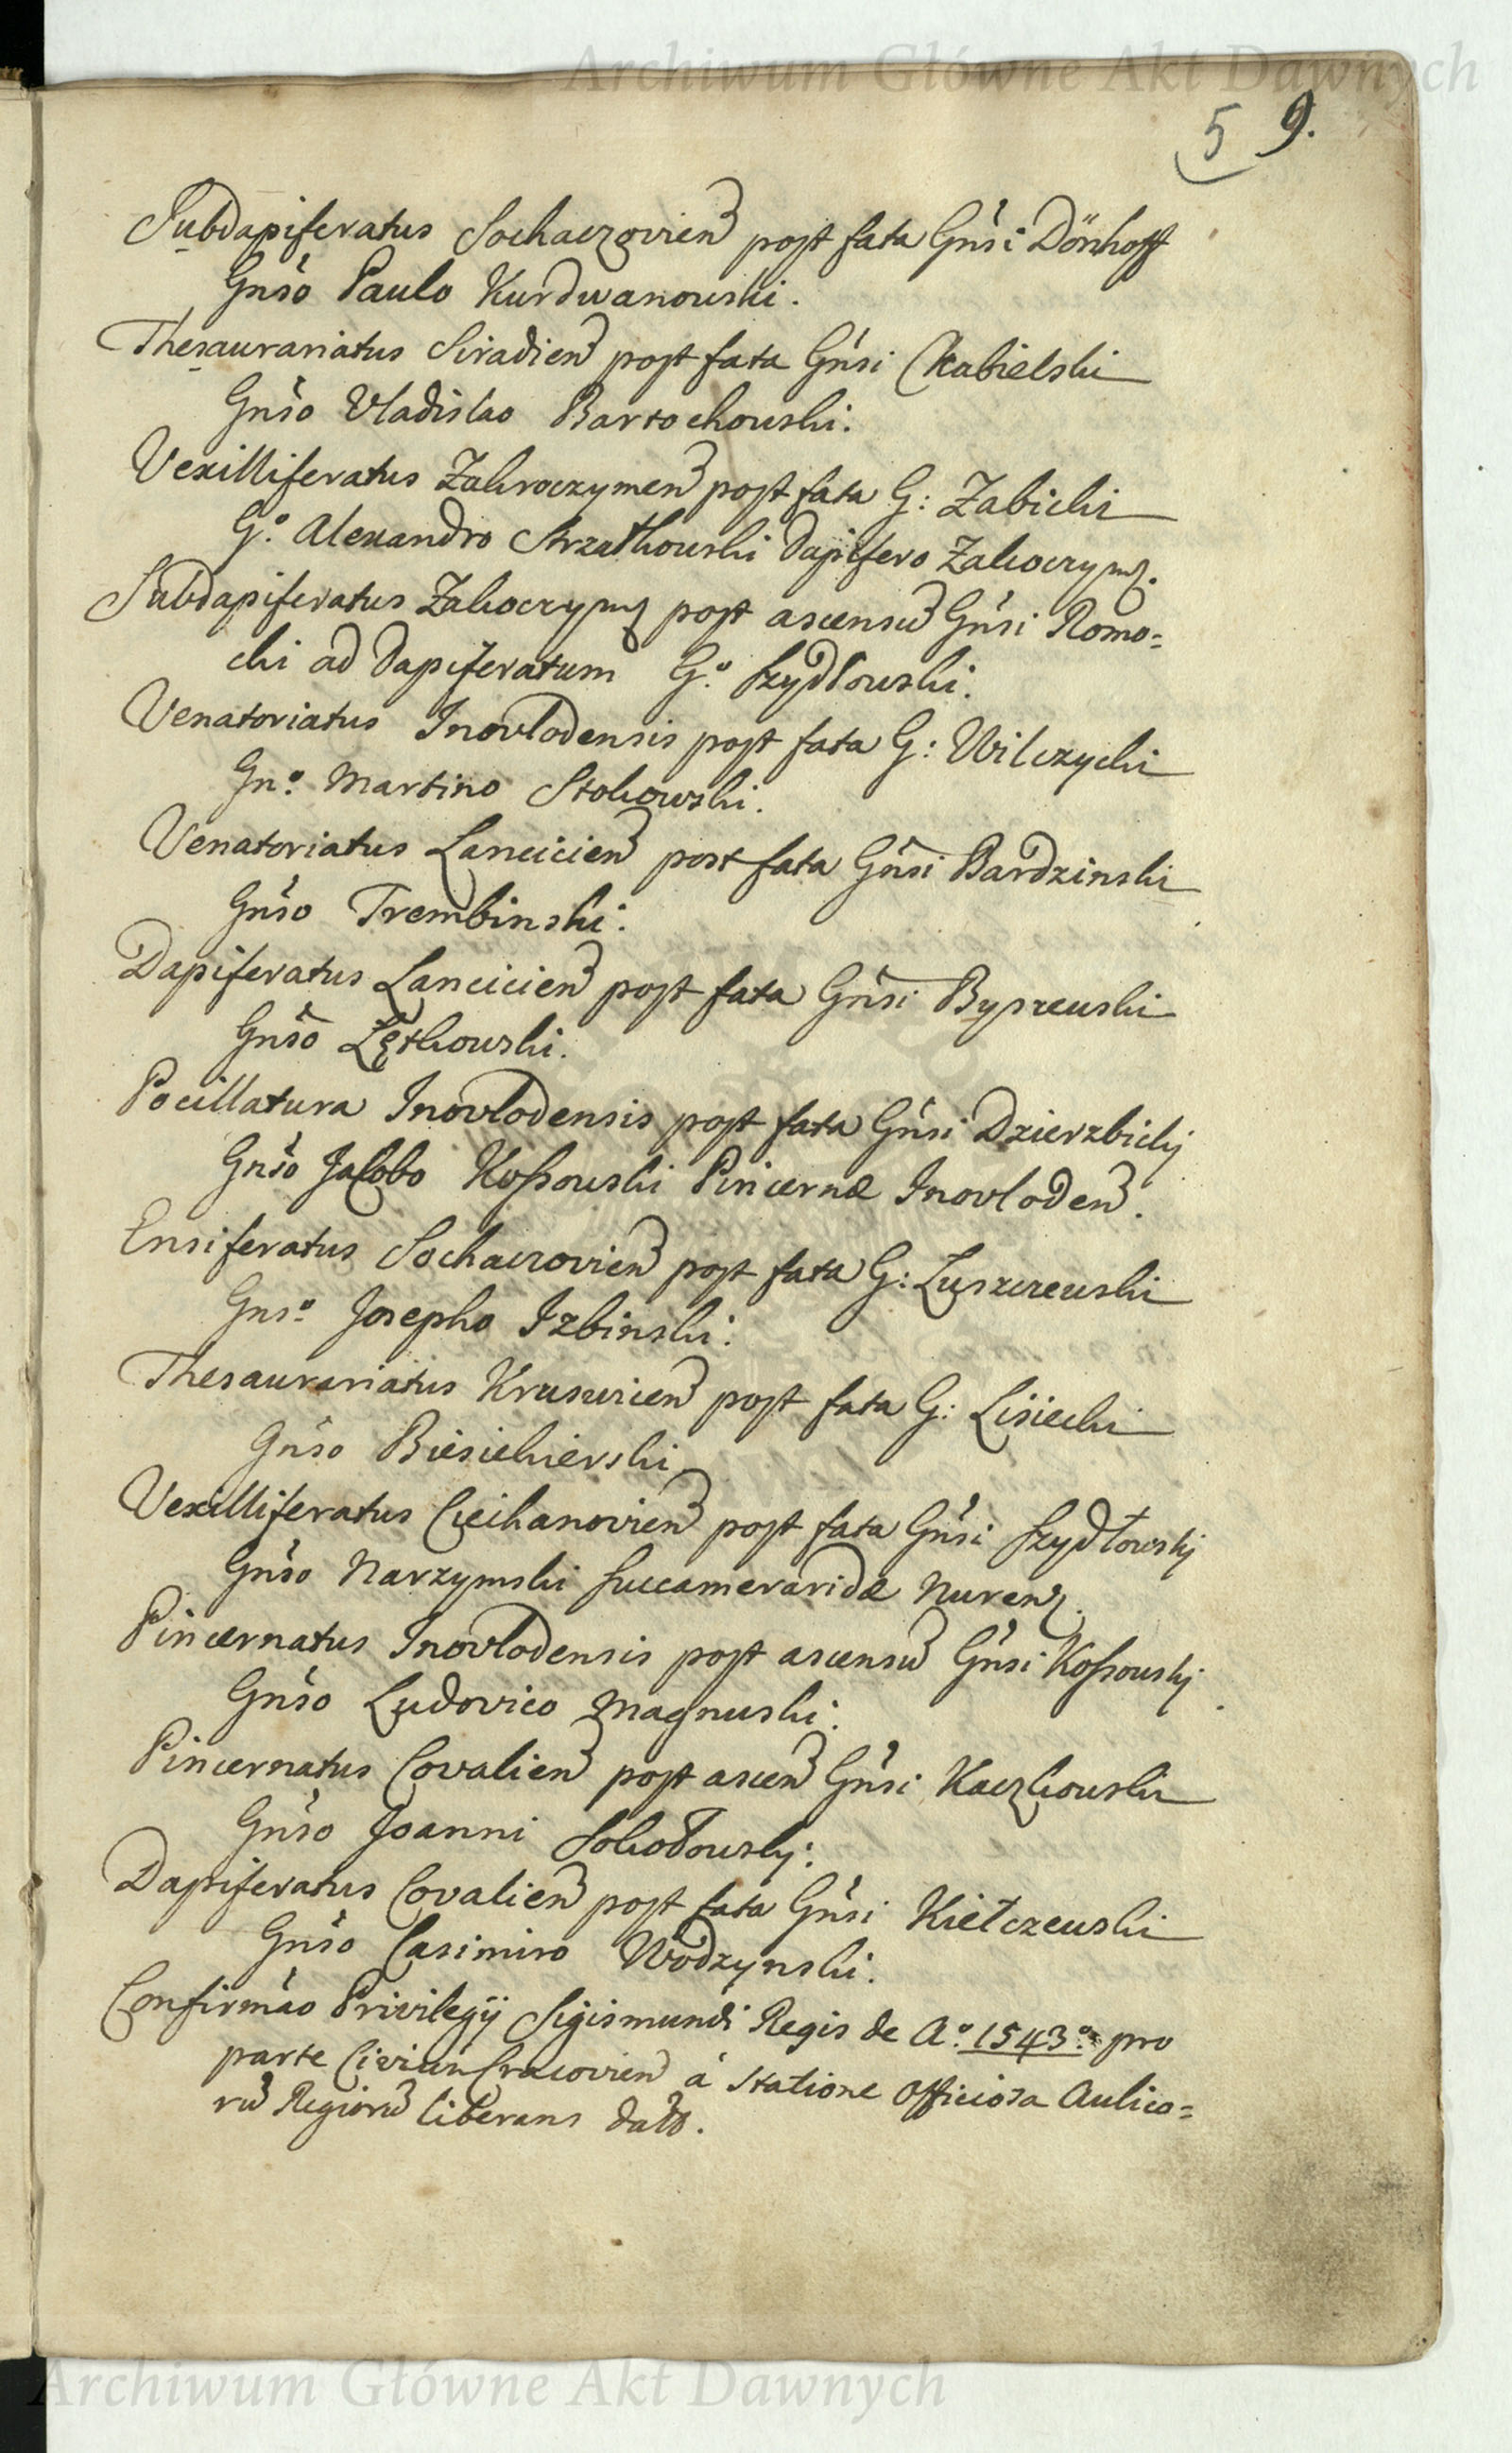 Archiwum Główne Akt Dawnych
5 9.
Subdapiferatus Sochaczovien post fata Gnsi Dönhoff
Gnso Paulo Kurdwanowski.
Thesaurariatus Siradien post fata Gnsi Chabielski
Gnso Vladislao Bartochowski.
Vexilliferatus Zakroczymen post fata G: Zabicki
G.o Alexandro Strzałkowski Dapifero Zakroczym.
Subdapiferatus Zakroczym post ascensu Gnsi Romo=
cki ad Dapiferatum G.o Szydłowski.
Venatoriatus Inovlodensis post fata G: Wilczycki
Gn.o Martino Stokowski.
Venatoriatus Lancicien post fata Gnsi Bardzinski
Gnso Trembinski.
Dapiferatus Lancicien post fata Gnsi Byszewski
Gnso Lętkowski.
Pocillatura Inovlodensis post fata Gnsi Dzierzbickj
Gnso Jacobo Kossowski Pincernæ Inovloden.
Ensiferatus Sochaczovien post fata G: Luszczewski
Gns.o Josepho Izbinski.
Thesaurariatus Kruswicien post fata G: Lisiecki
Gnso Biesiekierski
Vexilliferatus Ciechanovien post fata Gnsi Szydłowskj
Gnso Narzymski Succameraridæ Nuren.
Pincernatus Inovlodensis post ascensu Gnsi Kossowskj
Gnso Ludovico Magnuski.
Pincernatus Covalien post ascen Gnsi Kaczkowski
Gnso Joanni Sokołowskj.
Dapiferatus Covalien post fata Gnsi Kiełczewski
Gnso Casimiro Wodzynski.
Confirmao Privilegij Sigismundi Regis de A.o 1543.o pro
parte Civium Cracovien à Statione officiosa Aulico=
ru Regioru liberans dato.
Archiwum Główne Akt Dawnych